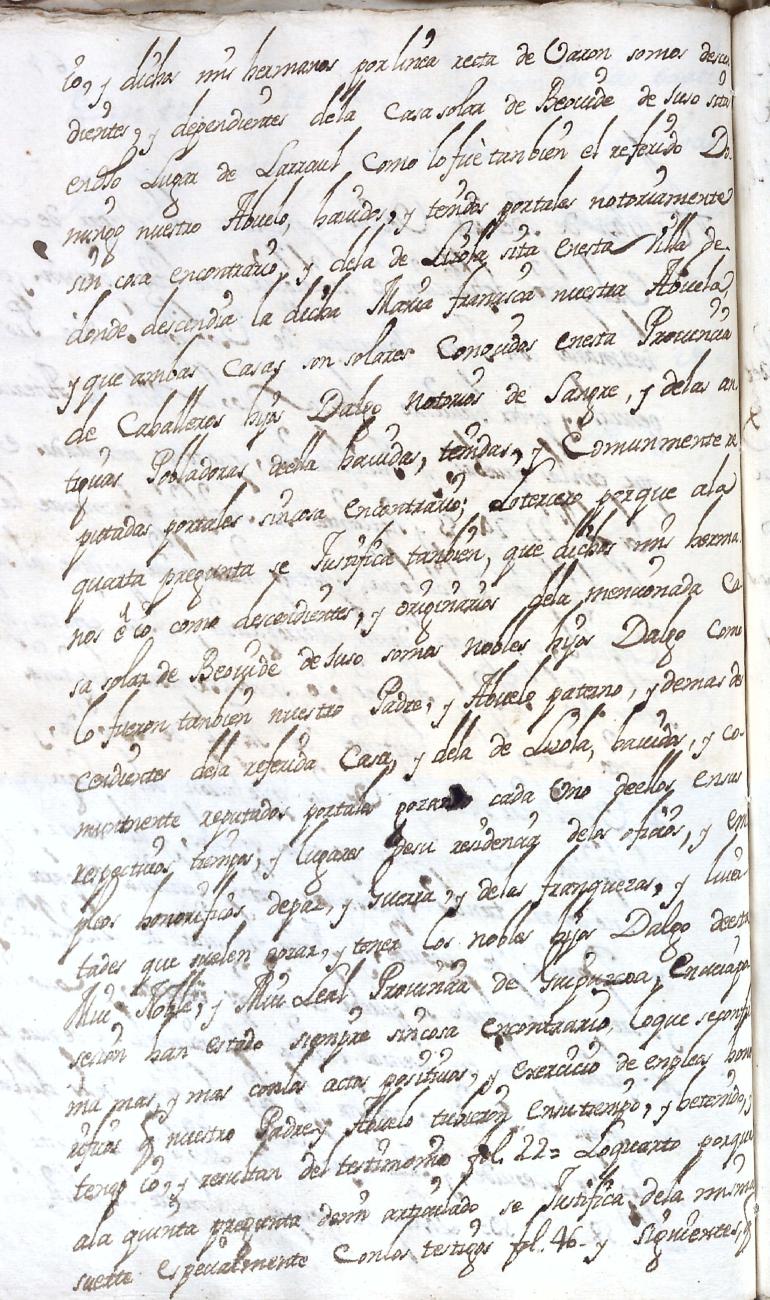 io, y dichos mis hermanos por linea recta de Varon somos descen
dientes, y dependientes della Casa solar de Beovide de suso sita
en dho Lugar de Larraul Como lo fuè tambien el referido Do
mingo nuestro Abuelo, havidos, y tenidos portales notoriamente
sin cosa encontrario, y dela de Lizola sita enesta Villa de
donde descendia la dicha Maria francisca nuestra Abuela
y que ambas Casas son solares Conocidas enesta Provincia
de Caballeros hijos Dalgo notorios de Sangre, y delas an
tiguas Pobladoras deella havidas, tenidas, y Comunmente re
putadas portales sincosa encontrario; Lotercero porque ala
quarta pregunta se Iustifica tambien, que dichos mis herma
nos è io como descendientes, y originarios dela mencionada Ca
sa solar de Beovide de suso somos nobles hijos Dalgo como
lo fueron tambien nuestro Padre, y Abuelo paterno, y demas des
cendientes dela referida Casa, y dela de Lizola, havidos, y co
munmente reputados portales gozando cada Vno deellos ensus
respectivos tiempos, y lugares desu residencia delos oficios, y em
pleos honorificos depaz, y Guerra, y delas franquezas, y liver
tades que suelen gozar, y tener los nobles hijos Dalgo deesta
Mui Noble, y Mui Leal Provincia de Guipuzcoa, Encuiapo
sesion han estado siempre sincosa encontrario, loque seconfir
ma mas, y mas conlos actos positivos, y exercicio de empleos hono
rificos q nuestro Padre, y Abuelo tubieron ensutiempo, y hetenido, y
tengo io, y resultan del testimonio fol. 22= Loquarto porque
ala quinta pregunta demi articulado se Iustifica dela misma
suerte especialmente Conlos testigos fol. 46. y siguientes, q